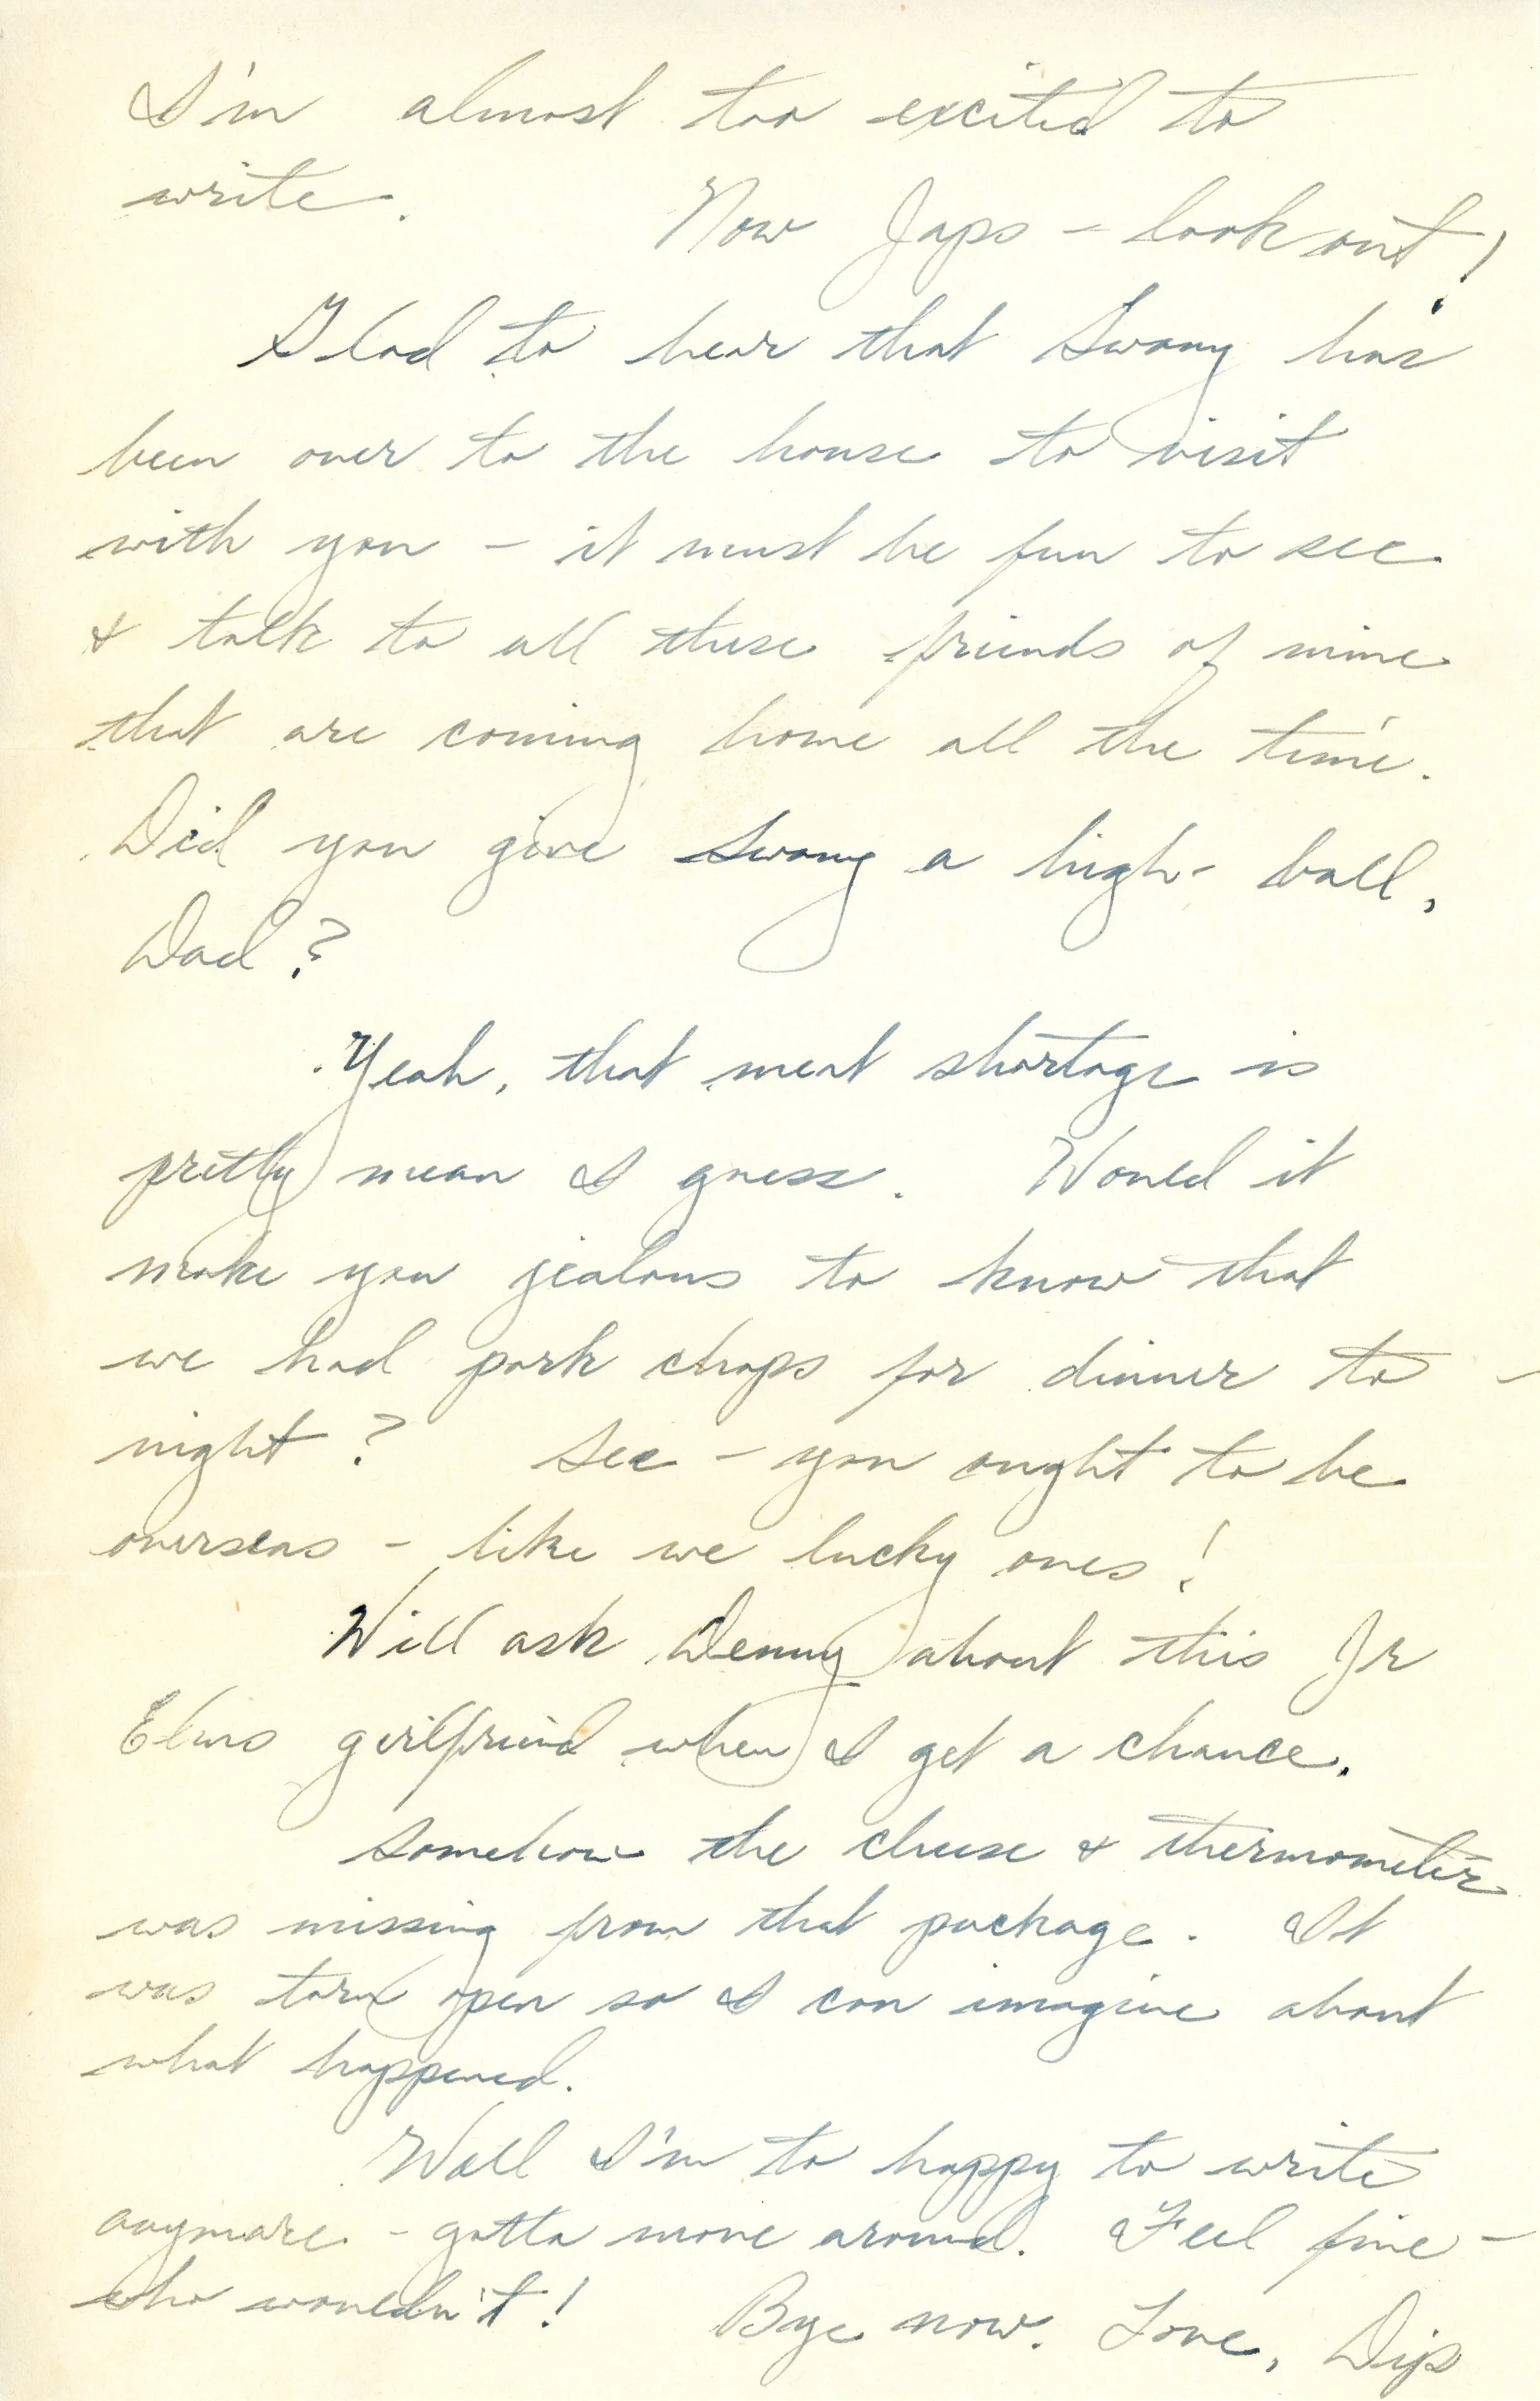 I'm almost too excited to
write. Now Japs - look out!
Glad to hear that Swany has
been over to the house to visit
with you - it must be fun to see
& talk to all these friends of mine
that are coming home all the time.
Did you give Swany a high-ball,
Dad?
Yeah, that meat shortage is
pretty mean I guess. Would it
make you jealous to know that
we had pork chops for dinner to-
night? See - you ought to be
overseas - like we lucky ones!
Will ask Denny about this Jr
girlfriend when I get a chance.
Somehow the cheese & thermometer
was missing from that package. It
was torn open so I can imagine about
what happened.
Well I'm to happy to write
anymore - gotta move around. Feel fine -
who wouldn't! Bye now. Love, Dip